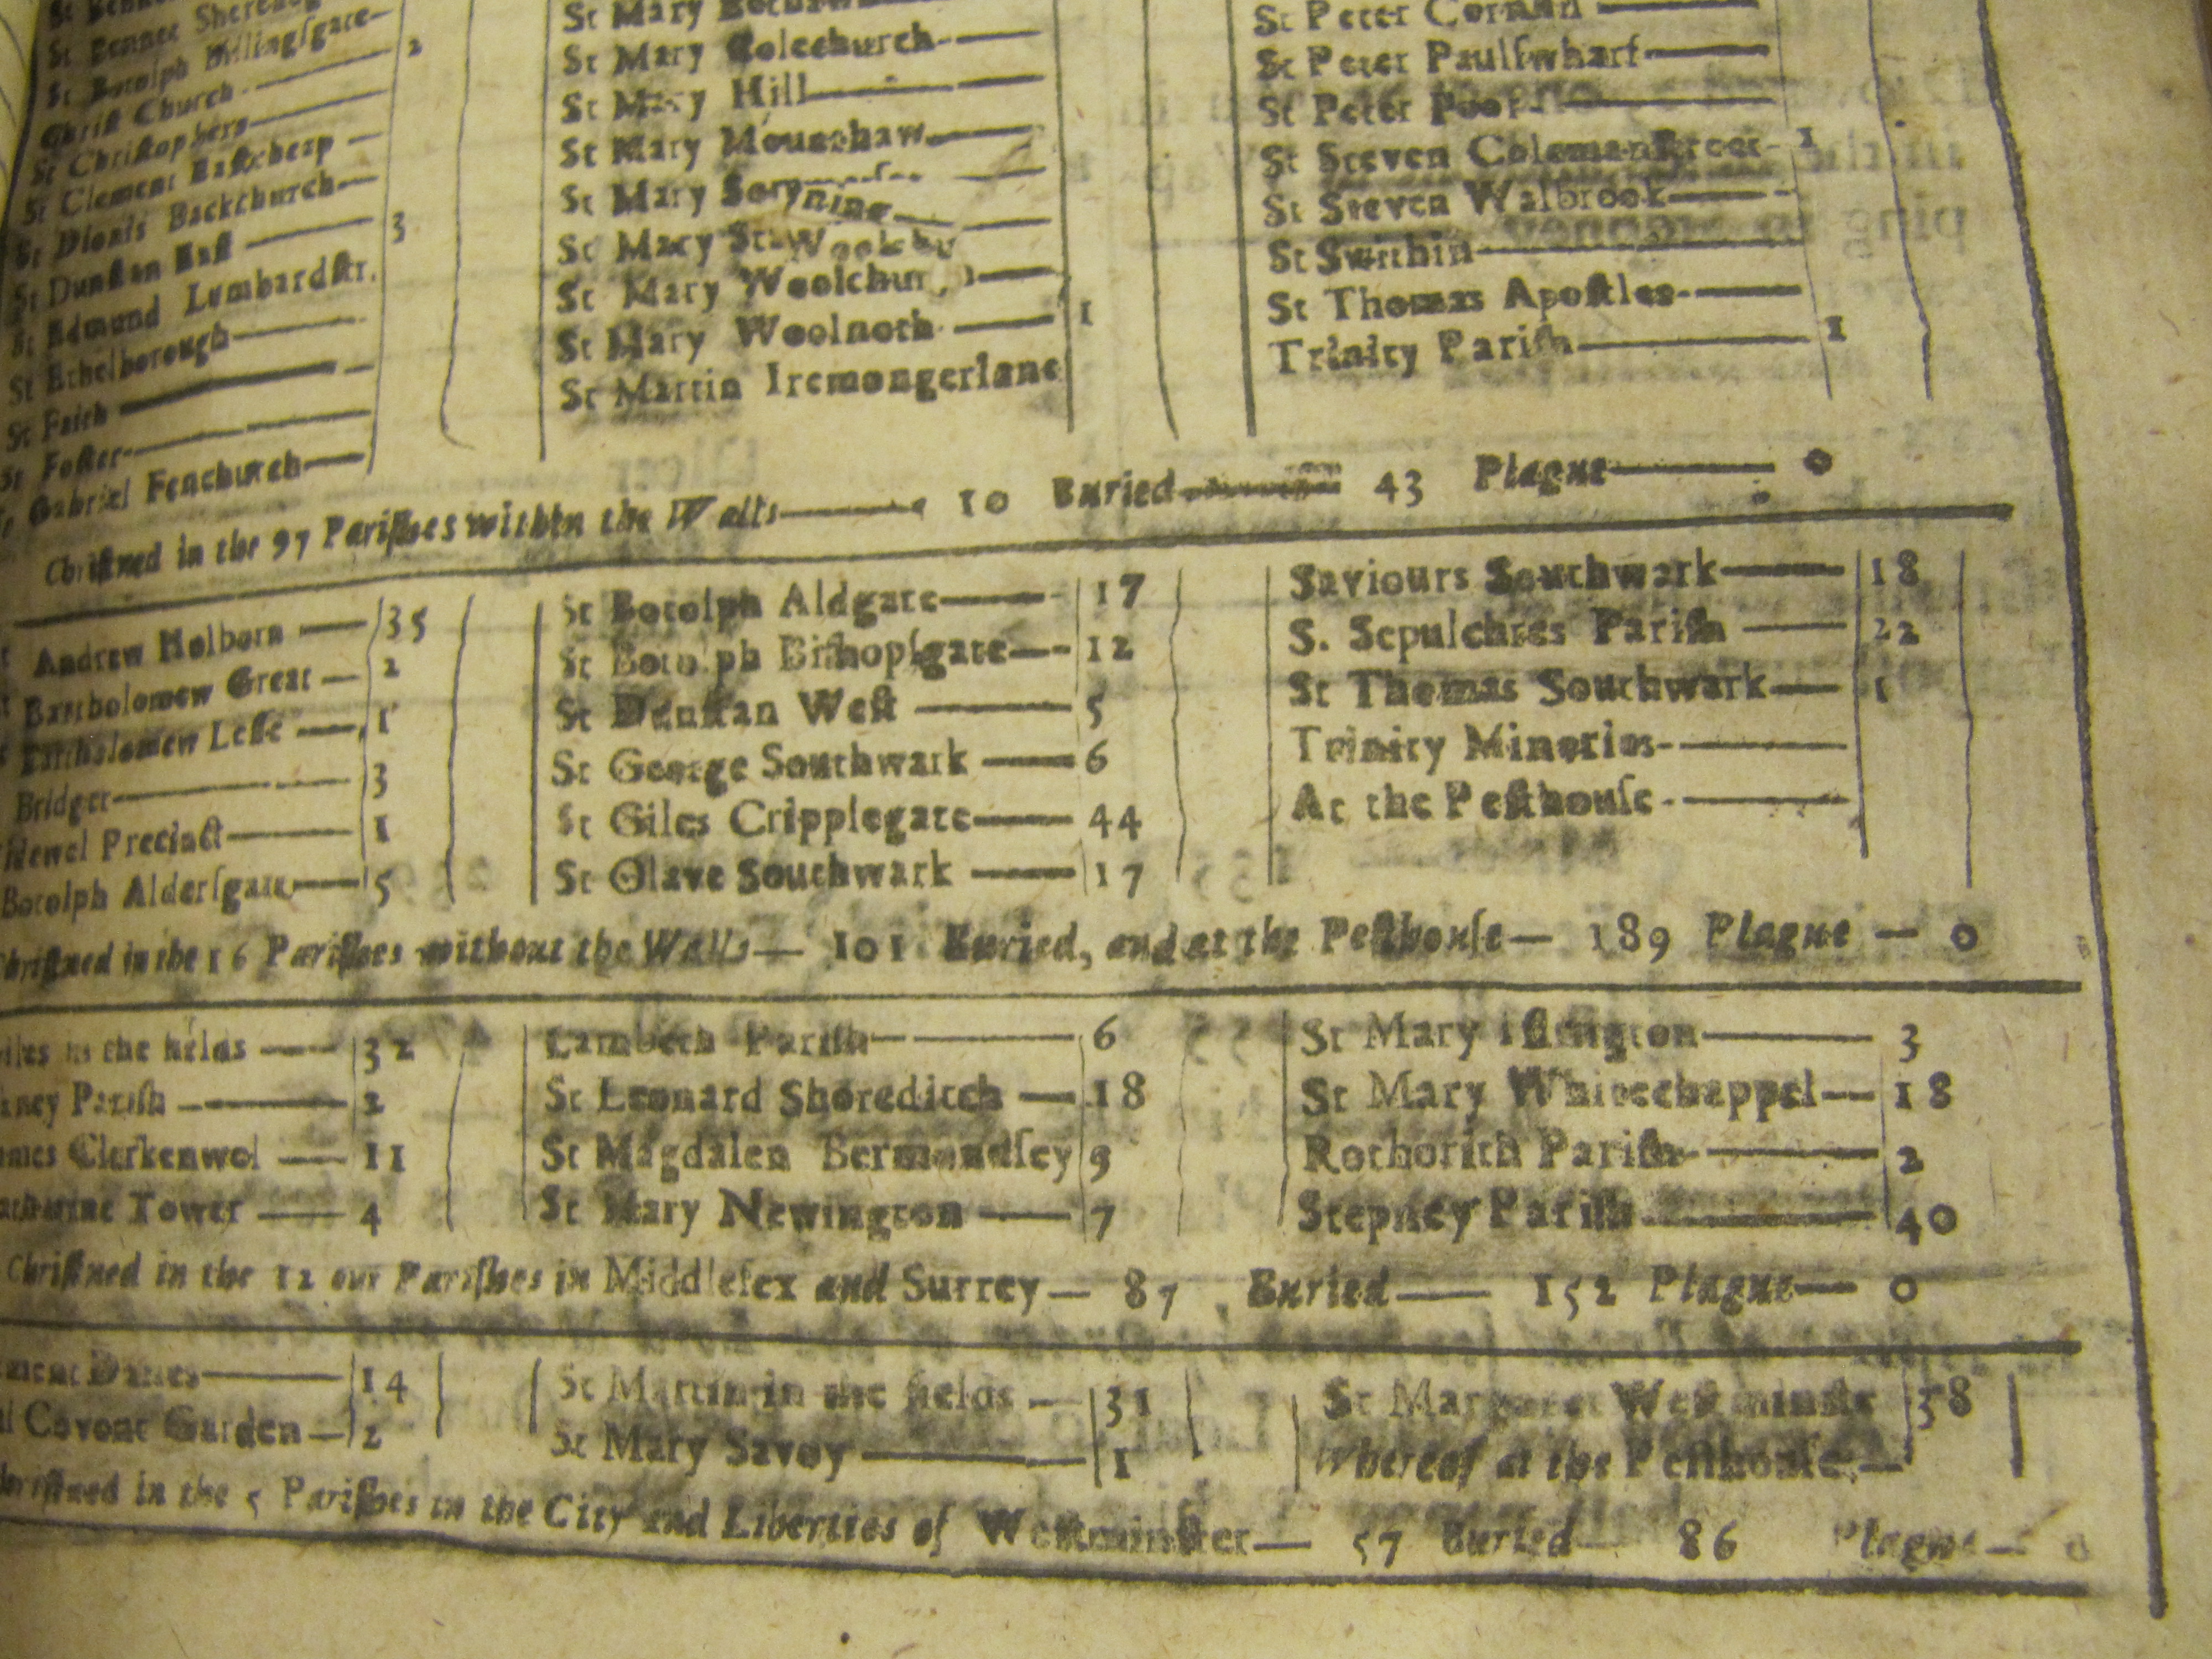 St Bennet Sherehog
St Botolph Billingſgate
Chriſt Church 2
St Chriſtophers
St Clement Eaſtcheap
St Dionis Backchurch
St Dunſtan Eaſt 3
St Edmund Lumbardſtr.
St Ethelborough
St Faith
St Foſter
St Gabriel Fenchurch
St Mary
St Mary Colechurch
St Mary Hill
St Mary Mounthaw
St Mary
St Mary
St Mary Woolchur
St Mary Woolnoth 1
St Martin Iremongerlane
St Peter Cornhil
St Peter Paulſwharf
St Peter Poor
St Steven Colemanſtreet 1
St Steven Walbrook
St Swithin
St Thomas Apoſtles
Trinity Pariſh 1
Chriſtned in the 97 Pariſhes within the Walls— 10 Buried— 43 Plague— 0
Andrew Holborn — 35
Bartholomew Great — 2
Bartholomew Leſſe — 1
Bridget — 3
Precinct — 1
Botolph Alderſgate — 5
St Botolph Aldgate — 17
St Botolph Biſhopſgate — 12
St Dunſtan Weſt — 5
St George Southwark — 6
St Giles Cripplegate — 44
St Olave Southwark — 17
Saviours Southwark — 18
S. Sepulchres Pariſh — 22
St Thomas Southwark — 1
Trinity Minories
At the Peſthouſe
Chriſtned in the 16 Pariſhes without the Walls— 101 Buried, and at the Peſthouſe— 189 Plague — 0
in the fields — 32
Pariſh — 2
Clerkenwel — 11
Tower — 4
Lambeth Pariſh — 6
St Leonard Shoreditch — 18
St Magdalen Bermondſey 9
St Mary Newington — 7
St Mary Iſlington — 3
St Mary Whitechappel — 18
Rothorith Pariſh — 2
Stepney Pariſh — 40
Chriſtned in the 12 out Pariſhes in Middleſex and Surrey — 87 Buried — 152 Plague — 0
Danes — 14
Covent Garden — 2
St Martin in the fields — 31
St Mary Savoy — 1
St Margaret Weſtminſter 38
Whereof at the Peſthouſe —
Chriſtned in the 5 Pariſhes in the City and Liberties of Weſtminſter — 57 Buried — 86 Plague — 0